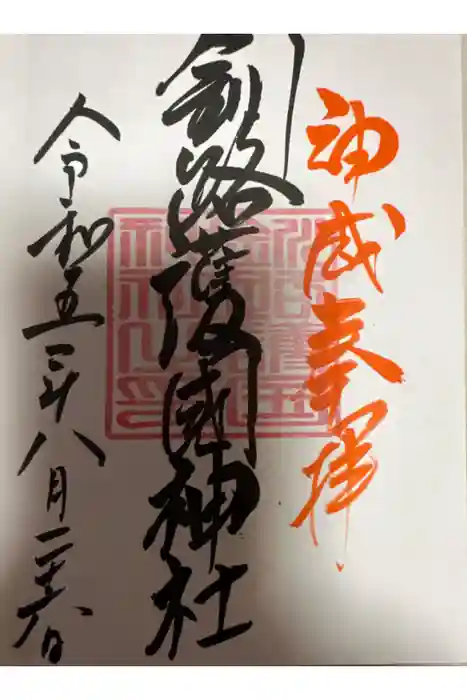 神威奉拝
釧路護國神社
令和五年八月二十六日